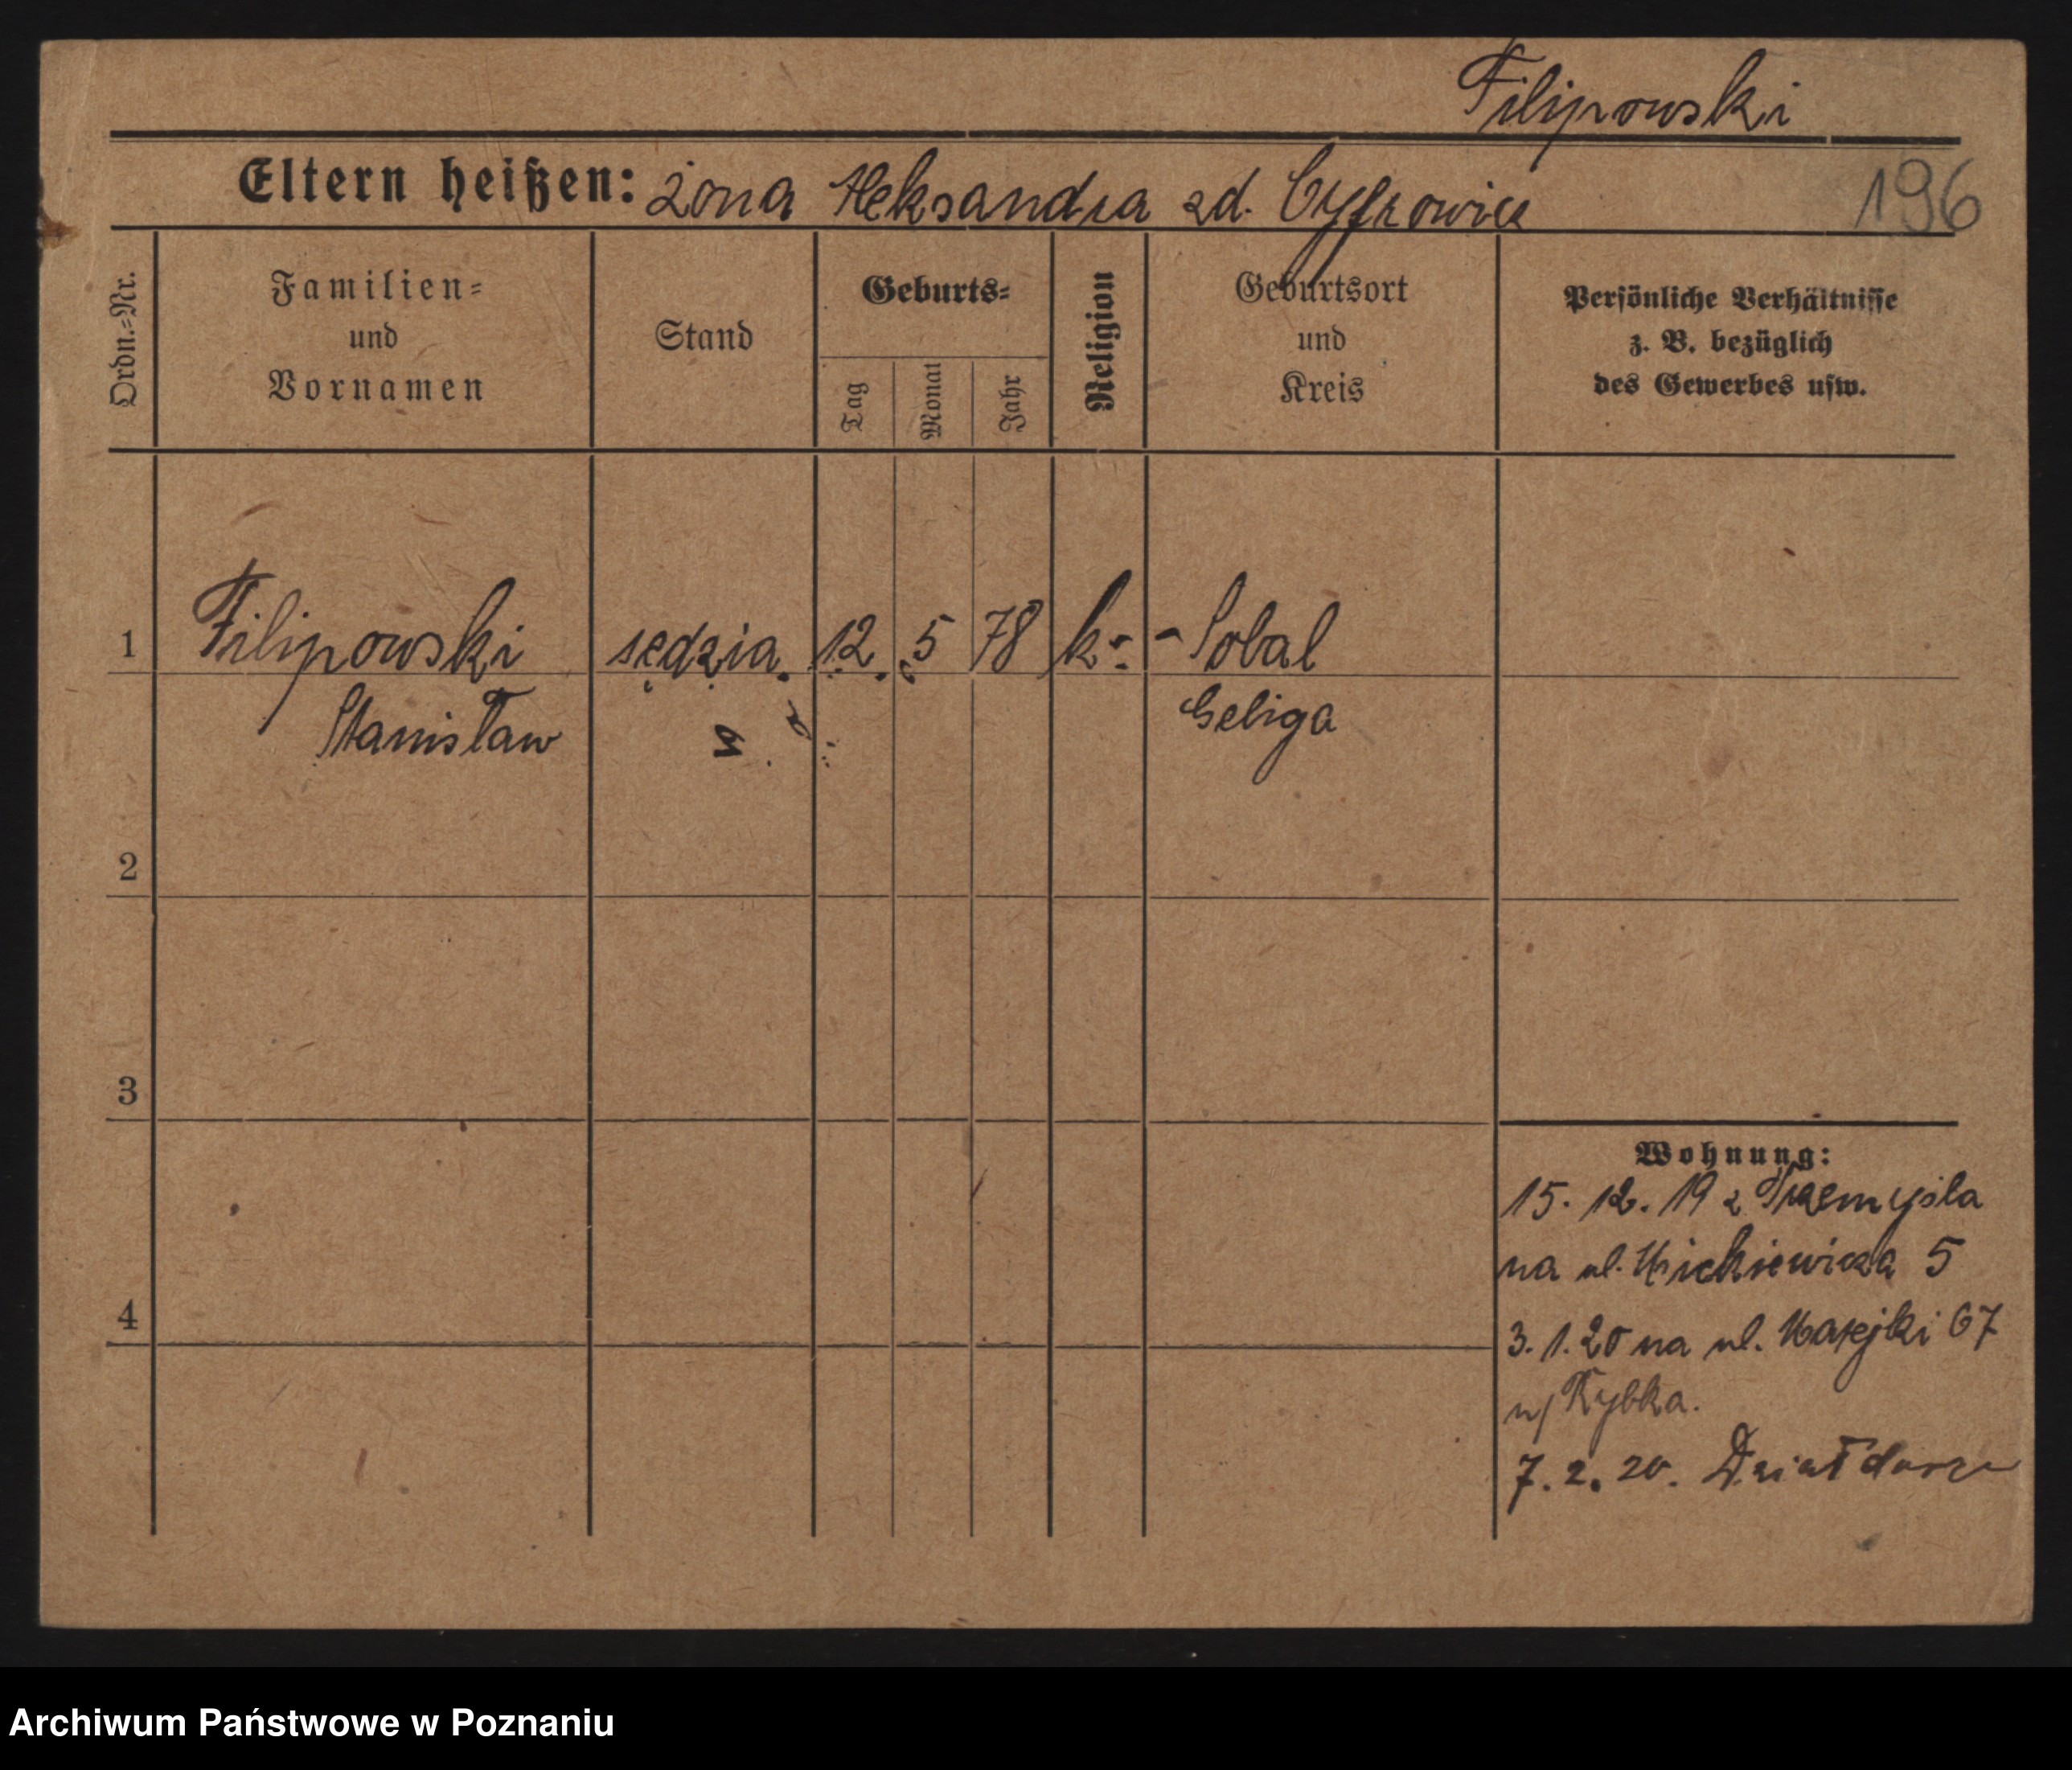 Filipowski
Eltern heißen: żona Aleksandra zd. Cyfrowicz
196
Ordn.=Nr.
Familien=
und
Vornamen
Stand
Geburts=
Tag
Monat
Jahr
Religion
Geburtsort
und
Kreis
Persönliche Verhältnisse
z. B. bezüglich
des Gewerbes usw.
1 Filipowski sędzia. 12. 5 78 k. Sobal
Stanisław Geliga
2
3
4
Wohnung:
15. 12. 19 z Przemyśla
na ul. Mickiewicza 5
3. 1. 20 na ul. Matejki 67
u/ Rybka.
7. 2. 20. Działdowo
Archiwum Państwowe w Poznaniu